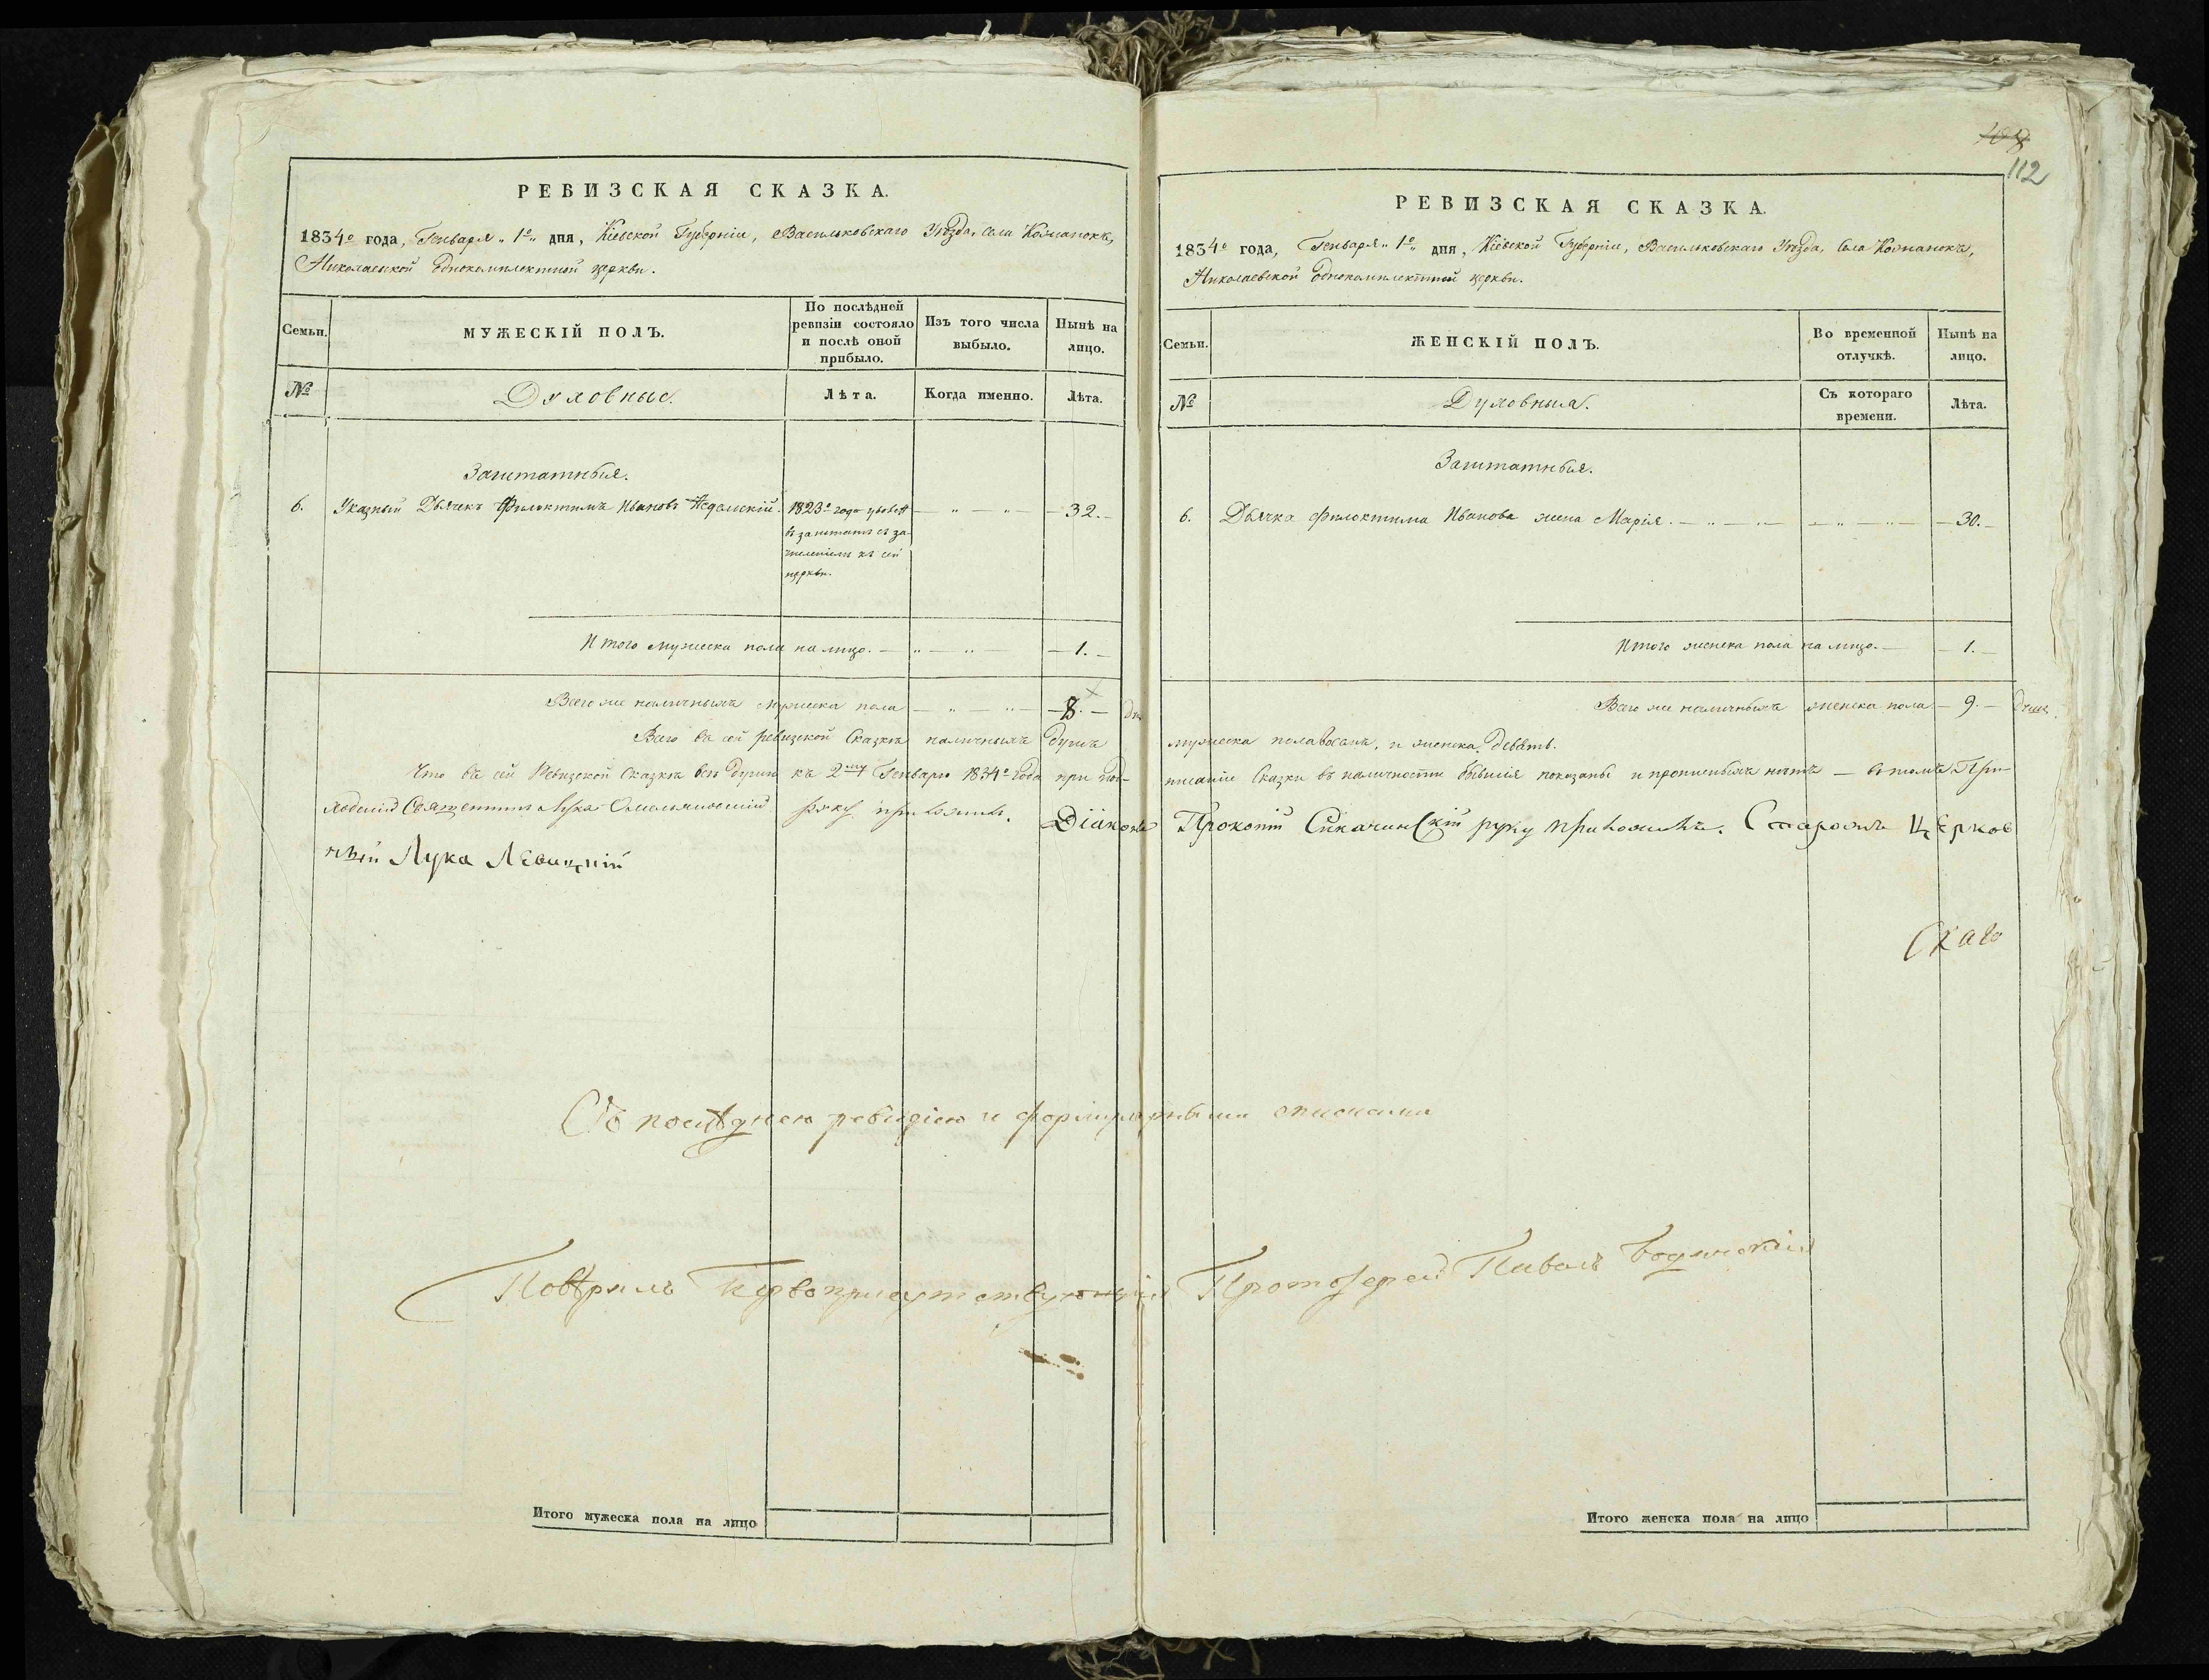 РЕВИЗСКАЯ СКАЗКА.
1834го года, Генваря „1го„ дня, Кіевской Губерніи, Васильковскаго Уѣзда, Села
Николаевской Однокомплектной церкви.
Семьи.
МУЖЕСКІЙ ПОЛЪ.
По послѣдней ревизіи состояло и послѣ оной прибыло.
Изъ того числа выбыло.
Нынѣ на лицо.
№
Духовные.
Лѣта.
Когда именно.
Лѣта.
Заштатныя.
6. Указный Дьячекъ Филоктимъ Ивановъ
1823го года уволен
въ заштатъ съ за-
численіемъ къ сей
церкви.
32.
Итого мужеска пола на лицо. 1.
Всего же наличныхъ мужеска пола 8.
Всего въ сей ревизской Сказкѣ наличныхъ душъ
Что въ сей Ревизской Сказкѣ всѣ души къ 2му Генварю 1834го года при под-
Священникъ Лука руку приложилъ. Діаконъ
ный Лука Левицкій
108
112
РЕВИЗСКАЯ СКАЗКА.
1834го года, Генваря „1го„ дня, Кіевской Губерніи, Васильковскаго Уѣзда, Села
Николаевской Однокомплектной церкви.
Семьи.
ЖЕНСКІЙ ПОЛЪ.
Во временной отлучкѣ.
Нынѣ на лицо.
№
Духовныя.
Съ котораго времени.
Лѣта.
Заштатныя.
6. Дьячка Филоктима Иванова жена Марія. 30.
Итого женска пола на лицо. 1.
Всего же наличныхъ женска пола 9. душъ.
мужеска пола восемь, и женска девять.
писаніи Сказки въ наличности бывшія показаны и прописныхъ нѣтъ — въ томъ При-
Прокопій руку приложилъ. Староста Церков
Скаго
Съ послѣднею ревизіею и формулярными списками
Повѣрилъ Первоприсутствующій Протоіерей Павелъ
Итого мужеска пола на лицо
Итого женска пола на лицо